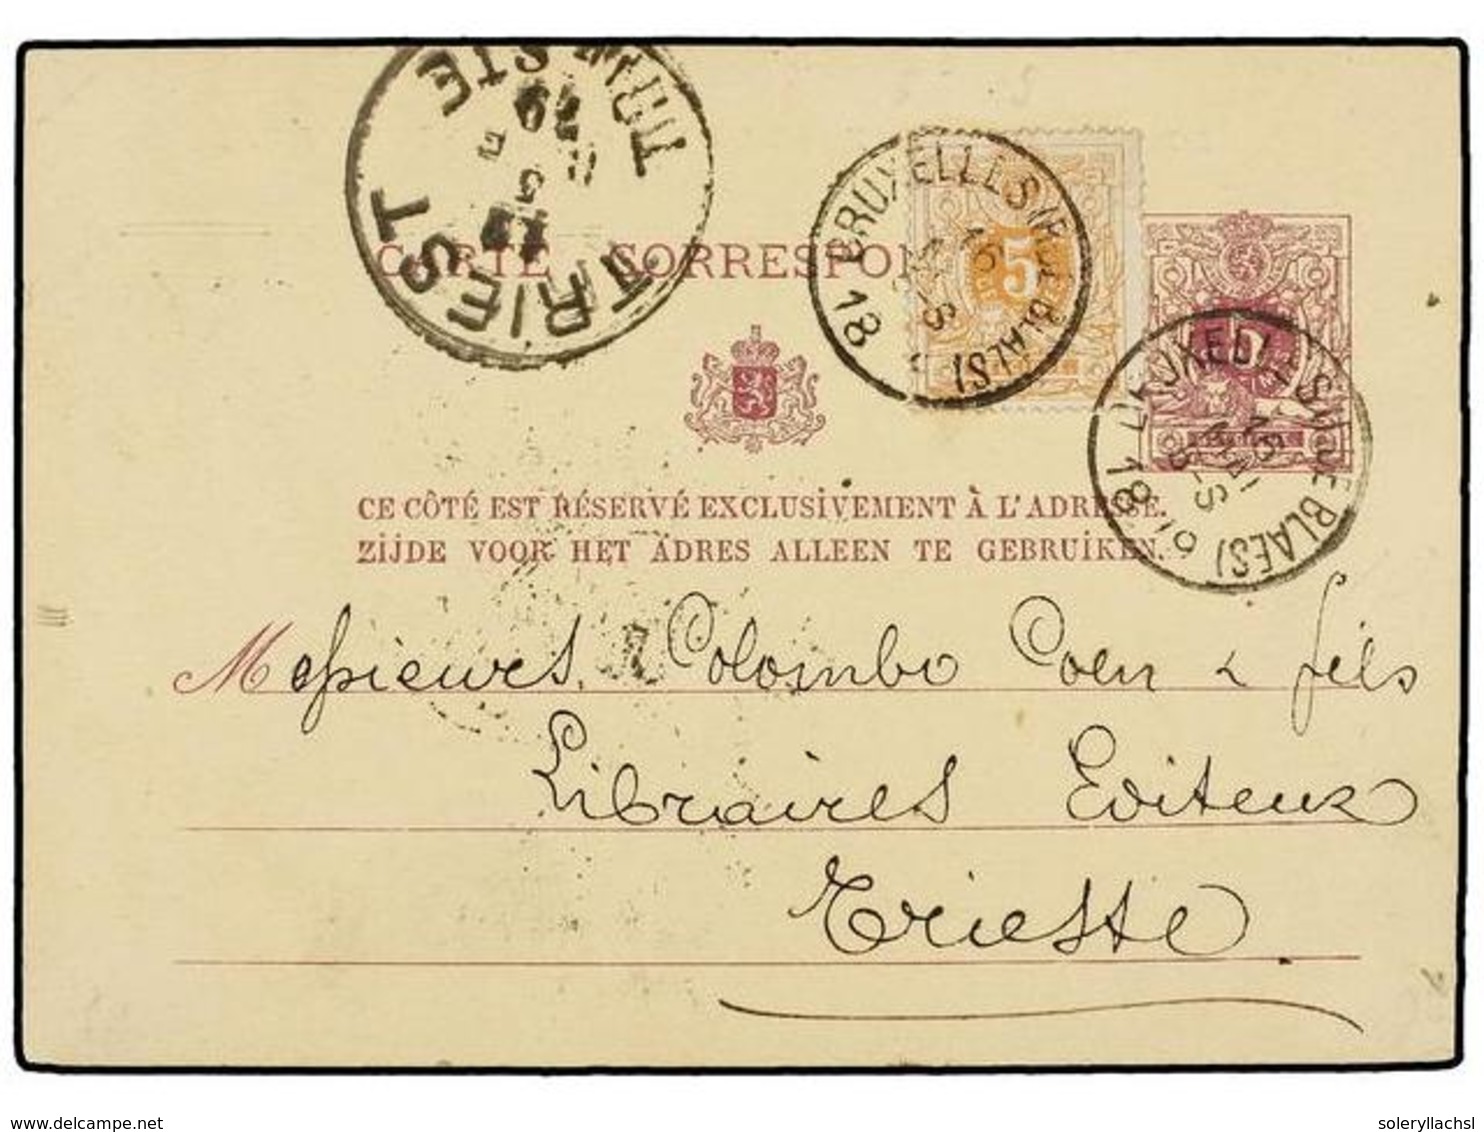 TRIEST TRIESTE
CARTE CORRESPON
5
BRUXELLES (RUE BLAES)
18
BRUXELLES (RUE BLAES)
1879
CE CÔTÉ EST RÉSERVÉ EXCLUSIVEMENT À L'ADRESSE.
ZIJDE VOOR HET ADRES ALLEEN TE GEBRUIKEN.
Messieurs Colombo Coen & fils
Libraires Editeurs
Trieste
www.delcampe.net
soleryllachsl